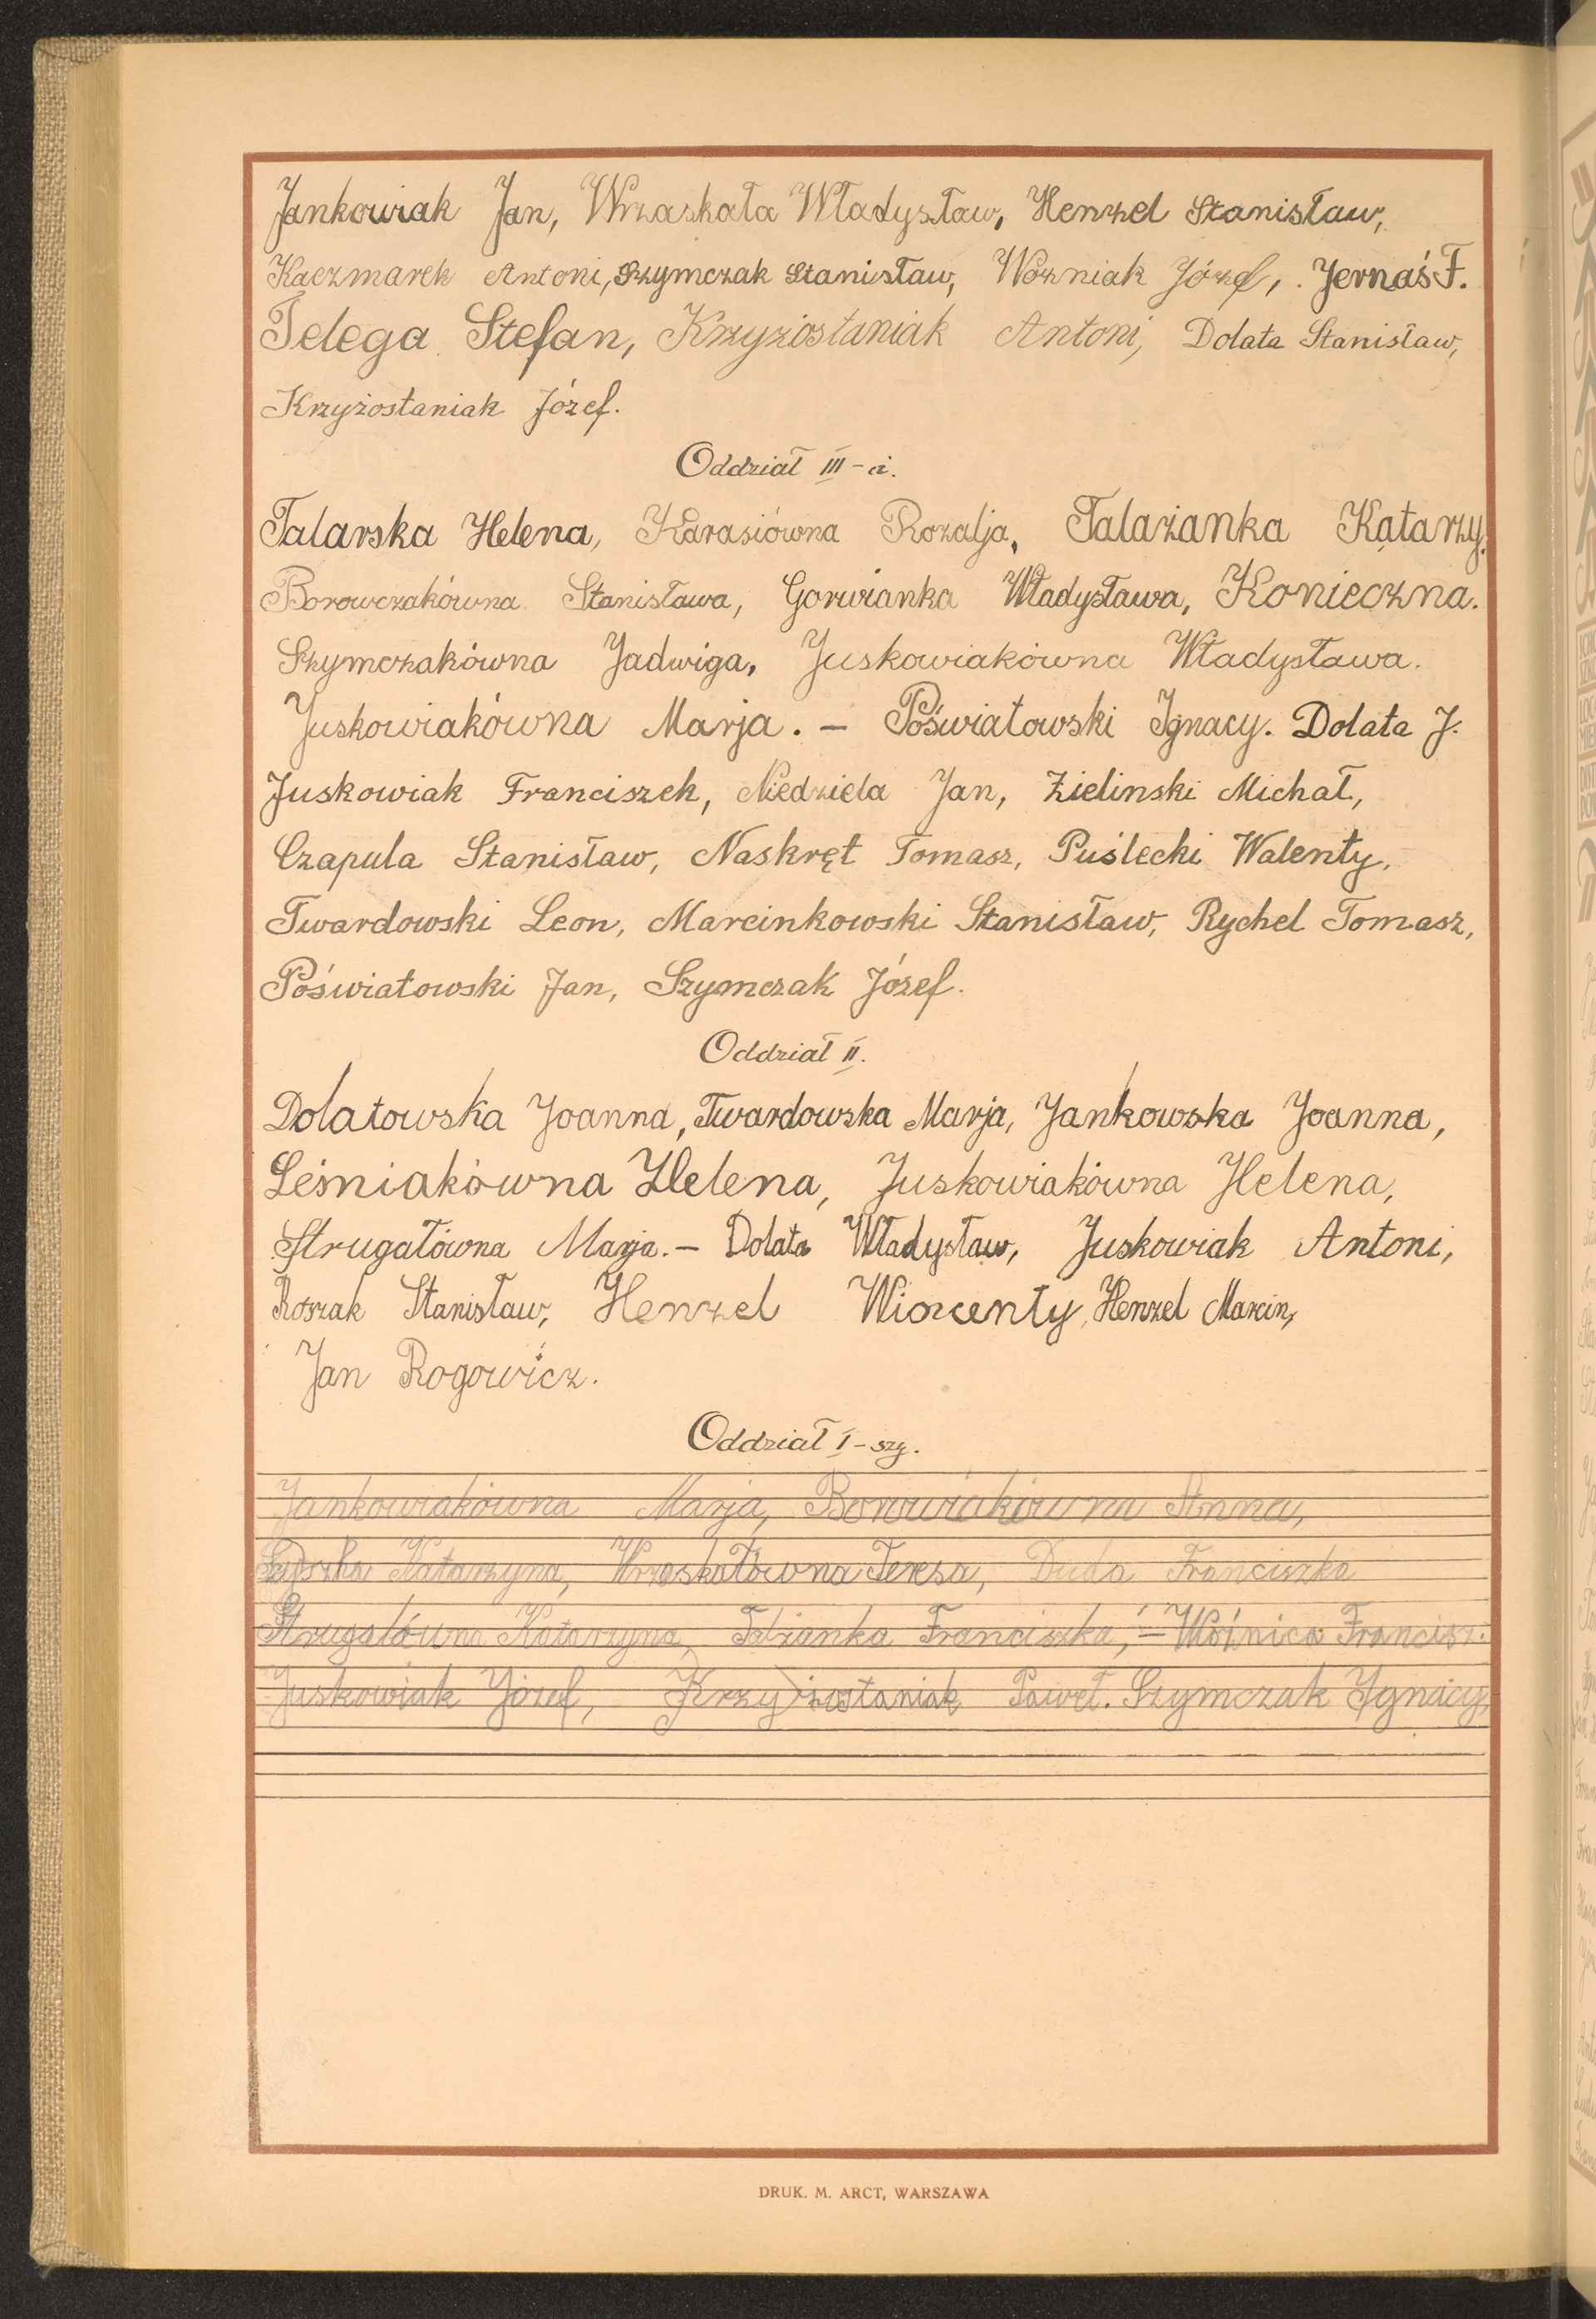 Jankowiak Jan, Wrzaskała Władysław, Henzel Stanisław,
Kaczmarek Antoni, Szymczak Stanisław, Woźniak Józef, Jernaś F.
Telega Stefan, Krzyżostaniak Antoni, Dolata Stanisław,
Krzyżostaniak Józef.
Oddział III-ci.
Talarska Helena, Karasiówna Rozalja, Talażanka Katarzy.
Borowczakówna Stanisława, Gorwianka Władysława, Konieczna.
Szymczakówna Jadwiga, Juskowiakówna Władysława.
Juskowiakówna Marja. – Poświatowski Ignacy. Dolata J.
Juskowiak Franciszek, Niedziela Jan, Zielinski Michał,
Czapula Stanisław, Naskręt Tomasz, Puślecki Walenty,
Twardowski Leon, Marcinkowski Stanisław, Rychel Tomasz,
Poświatowski Jan, Szymczak Józef.
Oddział II.
Dolatowska Joanna, Twardowska Marja, Jankowska Joanna,
Leśniakówna Helena, Juskowiakówna Helena,
Strugałówna Marja. – Dolata Władysław, Juskowiak Antoni,
Roszak Stanisław, Henzel Wincenty, Henzel Marcin,
Jan Rogowicz.
Oddział I-szy.
Jankowiakówna Marja, Borowiakówna Anna,
Katarzyna, Wrzaskałówna Teresa, Duda Franciszka
Strugałówna Katarzyna, Franciszka, – Woźnica Francisz.
Juskowiak Józef, Krzyżostaniak Paweł. Szymczak Ignacy,
DRUK. M. ARCT, WARSZAWA